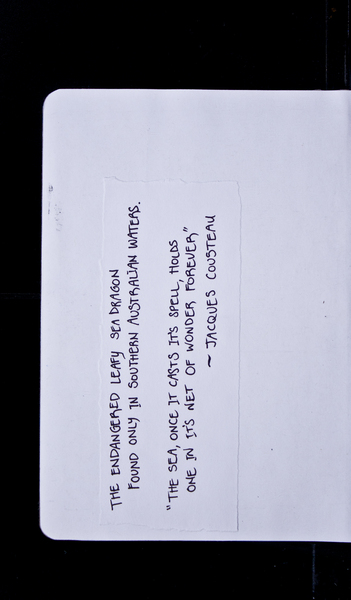 THE ENDANGERED LEAFY SEA DRAGON
FOUND ONLY IN SOUTHERN AUSTRALIAN WATERS.
"THE SEA, ONCE IT CASTS IT'S SPELL, HOLDS
ONE IN IT'S NET OF WONDER FOREVER"
~ JACQUES COUSTEAU